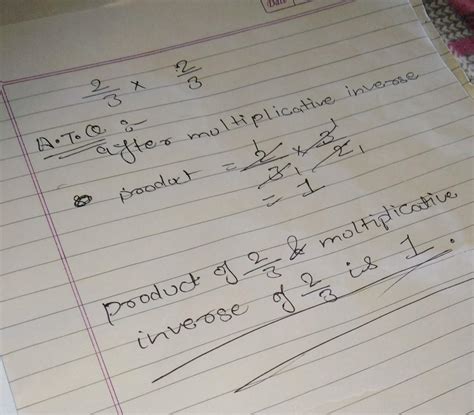 Date
2/3 × 2/3
A.T.Q :-
after multiplicative inverse
product = 2/3 × 3/2
= 1
product of 2/3 & multiplicative
inverse of 2/3 is 1.